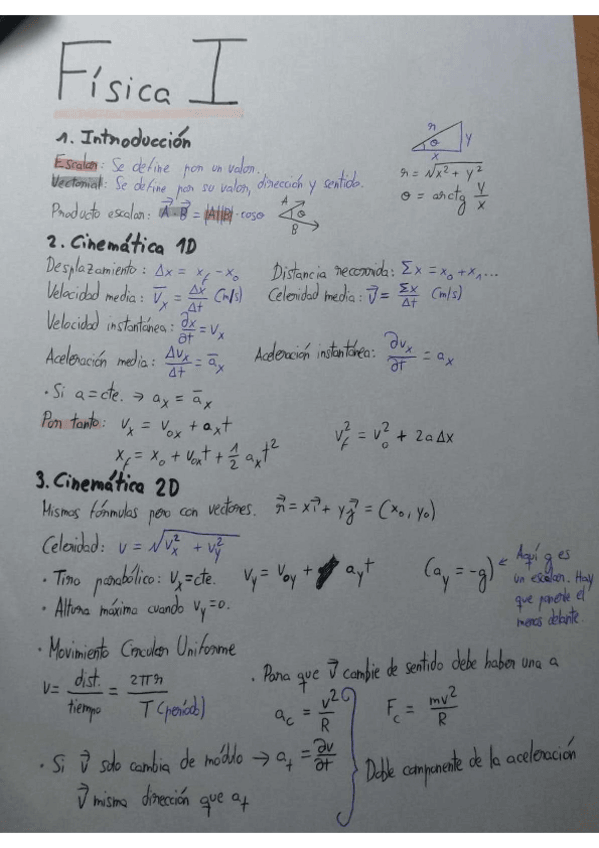 Física I
1. Introducción
Escalar: Se define por un valor.
Vectorial: Se define por su valor, dirección y sentido.
Producto escalar: A⃗·B⃗ = |A||B|·cosθ
A θ B
r y θ x
r = √x² + y²
θ = arctg y/x
2. Cinemática 1D
Desplazamiento: Δx = x_f - x_0 Distancia recorrida: Σx = x_0 + x_1...
Velocidad media: v̄_x = Δx/Δt (m/s) Celeridad media: v⃗ = Σx/Δt (m/s)
Velocidad instantánea: ∂x/∂t = v_x
Aceleración media: Δv_x/Δt = ā_x Aceleración instantánea: ∂v_x/∂t = a_x
· Si a = cte. → a_x = ā_x
Por tanto: v_x = v_0x + a_x t v_f² = v_0² + 2aΔx
x_f = x_0 + v_0x t + 1/2 a_x t²
3. Cinemática 2D
Mismas fórmulas pero con vectores. r⃗ = xi⃗ + yj⃗ = (x_0, y_0)
Celeridad: v = √v_x² + v_y²
· Tiro parabólico: v_x = cte. v_y = v_0y + a_y t (a_y = -g) ← Aquí g es
un escalar. Hay
que ponerle el
menos delante.
· Altura máxima cuando v_y = 0.
· Movimiento Circular Uniforme
v = dist./tiempo = 2πr/T (período)
· Para que v⃗ cambie de sentido debe haber una a
a_c = v²/R F_c = mv²/R
· Si v⃗ solo cambia de módulo → a_t = ∂v/∂t
v⃗ misma dirección que a_t
Doble componente de la aceleración